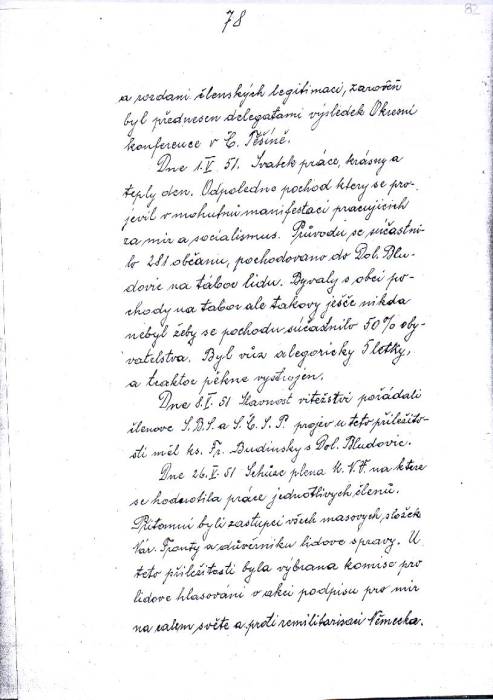 82
78
a rozdani členských legitimaci, zaroveň
byl přednesen delegatami výsledek Okresní
konference v Č. Těšíně.
Dne 1.V. 51. Svatek práce, krásny a
teply den. Odpoledne pochod ktery se pro-
jevil v mohutnů manifestaci pracujicich
za mir a socialismus. Průvodu se sučastni-
lo 281 občanu, pochodovano do Dol. Blu-
dovic na tábor lidu. Byvaly s obci po-
chody na tabor ale takovy ješče nikda
nebyl žeby se pochodu sučasnilo 50% oby-
vatelstva. Byl vůz alegoricky 5 letky,
a traktor pěkne vystrojen.
Dne 8.V. 51 Slavnost vitežství pořádali
členove S.B.S. a S.Č.S.P. projev u teto přiležito-
sti měl ks. Fr. Budinsky s Dol. Bludovic.
Dne 26.V. 51 Schůze plena M.V.F. na ktere
se hodnotila práce jednotlivych členů.
Přitomni byli zastupci všech masovych složek
Nár. Fronty a důvěrniku lidove spravy. U
teto přiležitosti byla výbrana komise pro
lidove hlasováni v akci podpisu pro mir
na calem světe a proti remilitarisaci Německa.